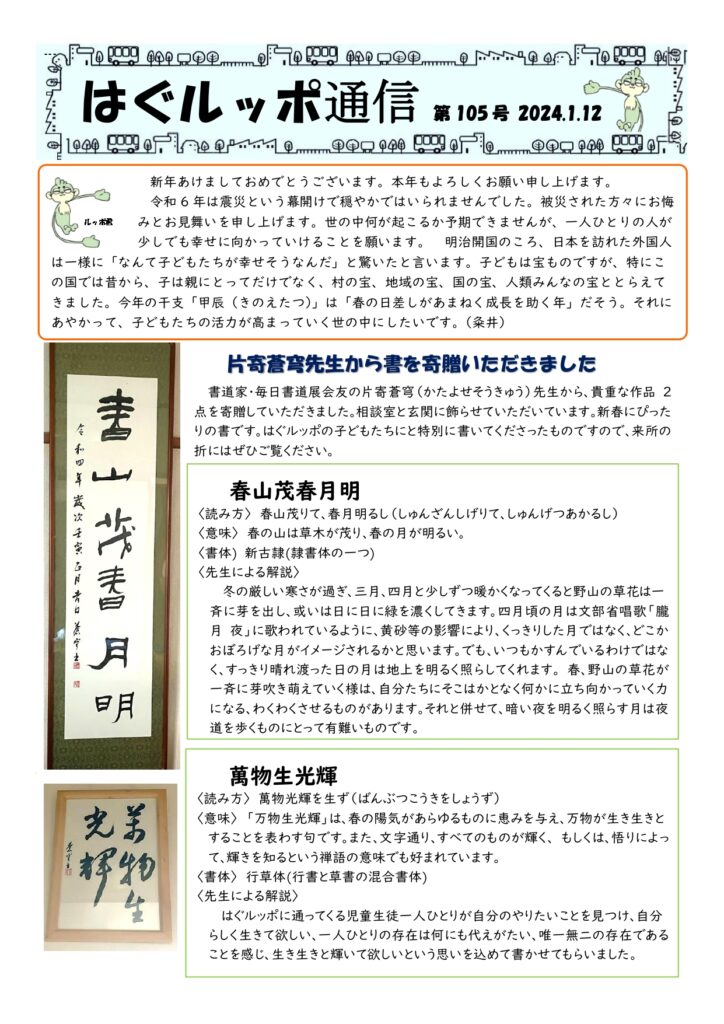 はぐルッポ通信 第105号 2024.1.12
ルッポ君
新年あけましておめでとうございます。本年もよろしくお願い申し上げます。
令和6年は震災という幕開けで穏やかではいられませんでした。被災された方々にお悔
みとお見舞いを申し上げます。世の中何が起こるか予期できませんが、一人ひとりの人が
少しでも幸せに向かっていけることを願います。　明治開国のころ、日本を訪れた外国人
は一様に「なんて子どもたちが幸せそうなんだ」と驚いたと言います。子どもは宝ものですが、特にこ
の国では昔から、子は親にとってだけでなく、村の宝、地域の宝、国の宝、人類みんなの宝ととらえて
きました。今年の干支「甲辰（きのえたつ）」は「春の日差しがあまねく成長を助く年」だそう。それに
あやかって、子どもたちの活力が高まっていく世の中にしたいです。（粂井）
片寄蒼穹先生から書を寄贈いただきました
書道家・毎日書道展会友の片寄蒼穹（かたよせそうきゅう）先生から、貴重な作品 2
点を寄贈していただきました。相談室と玄関に飾らせていただいています。新春にぴった
りの書です。はぐルッポの子どもたちにと特別に書いてくださったものですので、来所の
折にはぜひご覧ください。
春山茂春月明
令和四年歳次壬寅正月吉日
春山茂春月明
〈読み方〉 春山茂りて、春月明るし（しゅんざんしげりて、しゅんげつあかるし）
〈意味〉 春の山は草木が茂り、春の月が明るい。
〈書体〉 新古隷(隷書体の一つ)
〈先生による解説〉
冬の厳しい寒さが過ぎ、三月、四月と少しずつ暖かくなってくると野山の草花は一
斉に芽を出し、或いは日に日に緑を濃くしてきます。四月頃の月は文部省唱歌「朧
月　夜」に歌われているように、黄砂等の影響により、くっきりした月ではなく、どこか
おぼろげな月がイメージされるかと思います。でも、いつもかすんでいるわけではな
く、すっきり晴れ渡った日の月は地上を明るく照らしてくれます。 春、野山の草花が
一斉に芽吹き萌えていく様は、自分たちにそこはかとなく何かに立ち向かっていく力
になる、わくわくさせるものがあります。それと併せて、暗い夜を明るく照らす月は夜
道を歩くものにとって有難いものです。
萬物生
光輝
萬物生光輝
〈読み方〉 萬物光輝を生ず（ばんぶつこうきをしょうず）
〈意味〉 「万物生光輝」は、春の陽気があらゆるものに恵みを与え、万物が生き生きと
することを表わす句です。また、文字通り、すべてのものが輝く、 もしくは、悟りによっ
て、輝きを知るという禅語の意味でも好まれています。
〈書体〉 行草体(行書と草書の混合書体)
〈先生による解説〉
はぐルッポに通ってくる児童生徒一人ひとりが自分のやりたいことを見つけ、自分
らしく生きて欲しい、一人ひとりの存在は何にも代えがたい、唯一無二の存在である
ことを感じ、生き生きと輝いて欲しいという思いを込めて書かせてもらいました。